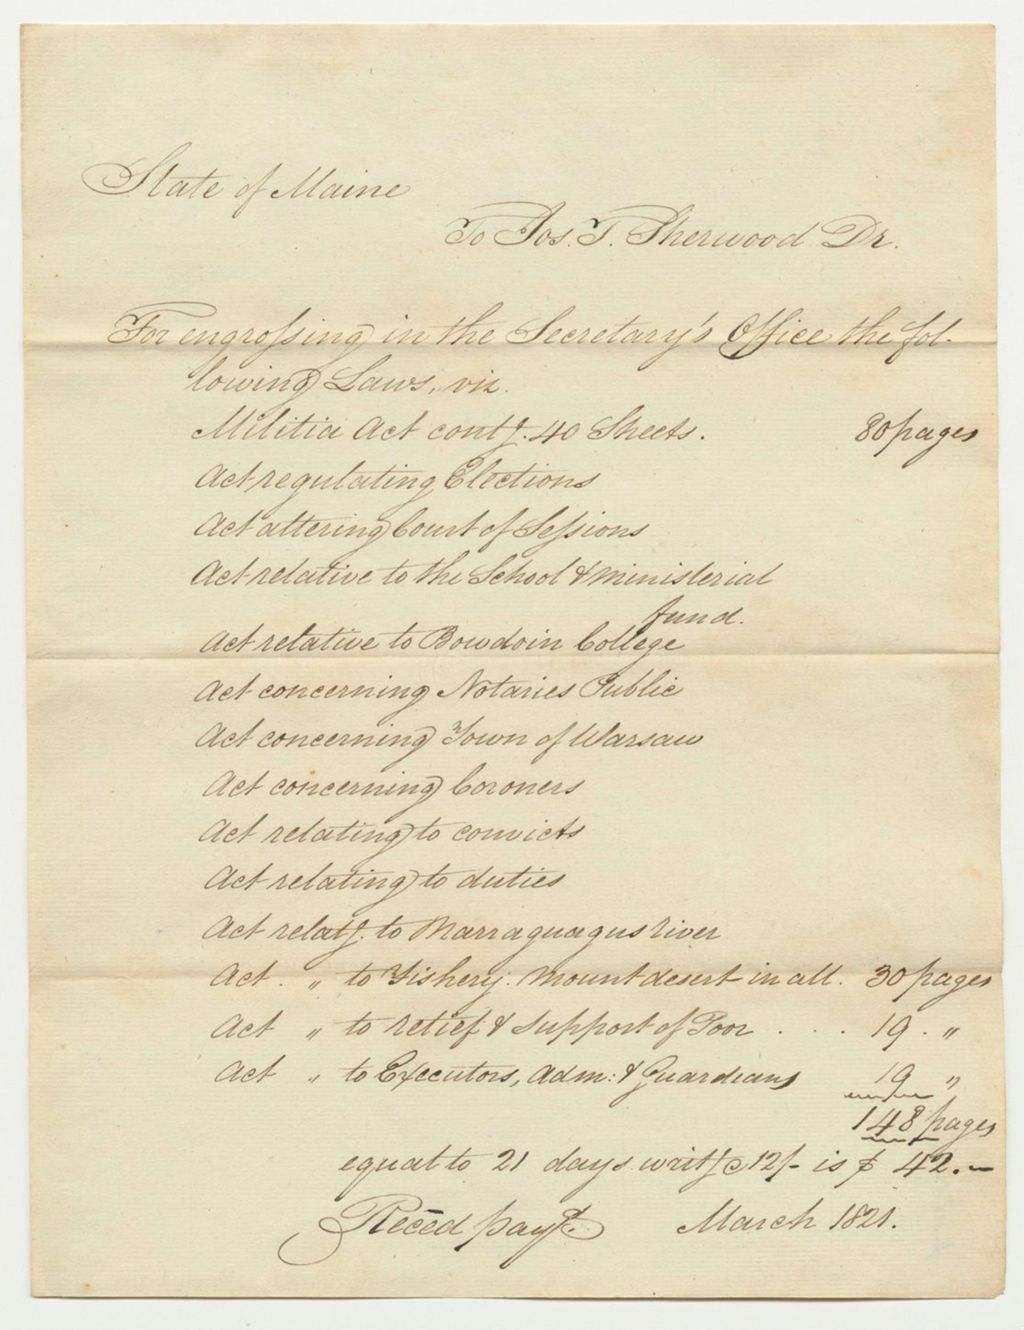 State of Maine
To Jos. T. Sherwood Dr.
For engrossing in the Secretary's Office the fol-
lowing Laws, viz.
Militia Act contg. 40 Sheets. 80 pages
Act regulating Elections
Act altering Court of Sessions
Act relative to the School & ministerial
fund.
Act relative to Bowdoin College
Act concerning Notaries Public
Act concerning Town of Warsaw
Act concerning Coroners
Act relating to convicts
Act relating to duties
Act relatg. to Narraguagus river
Act. " to Fishery. Mount desert in all. 30 pages
Act " to relief & support of Poor . . . 19. "
Act " to Executors, Adm: & Guardians 19 "
148 pages
equal to 21 days writg @ 12/- is $ 42.-
Reced payt. March 1821.